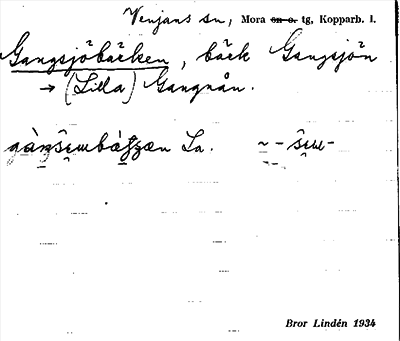 Venjans sn, Mora sn o. tg, Kopparb. l.
Gangsjöbäcken, bäck Gangsjön
→ (Lilla) Gangnån.
La.
Bror Lindén 1934